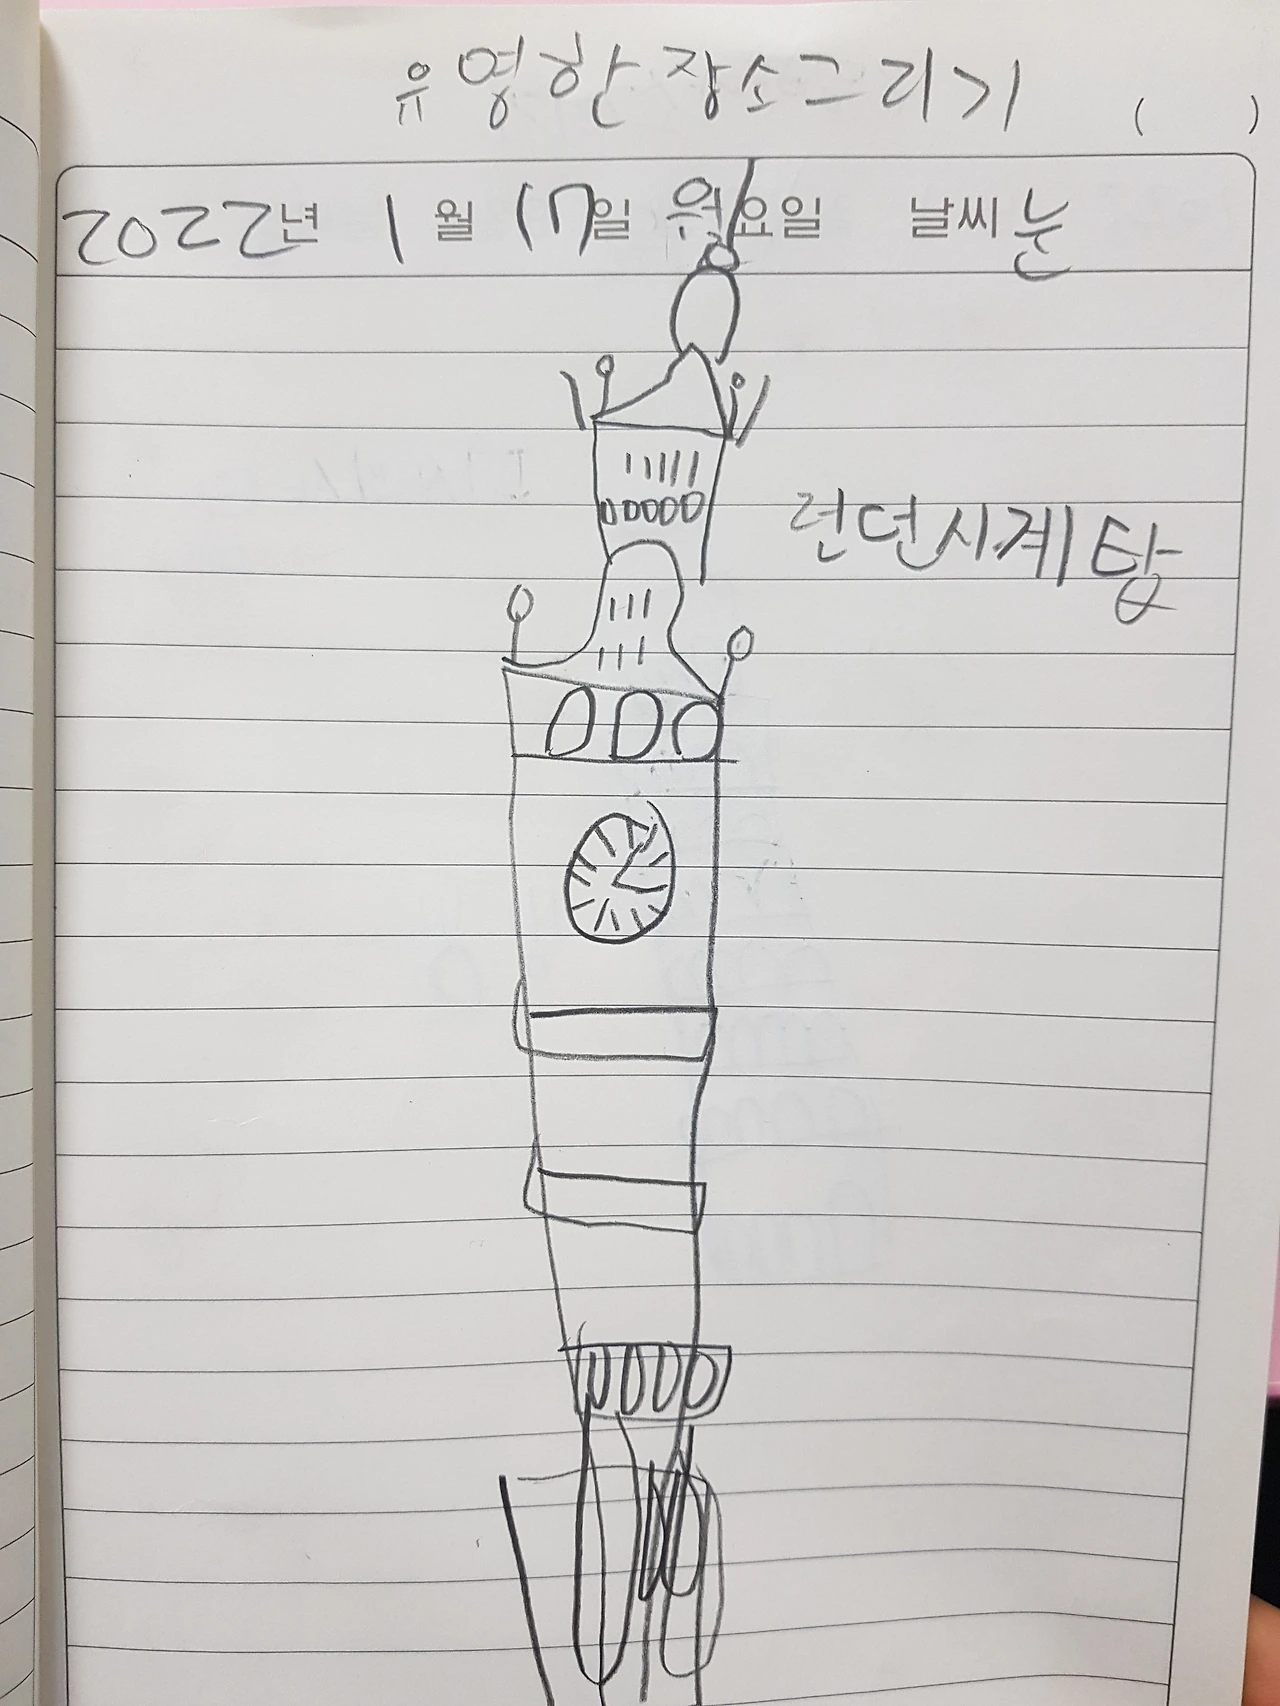 유영한 장소 그리기 ( )
2022년 1월 17일 월요일 날씨 눈
런던시계탑